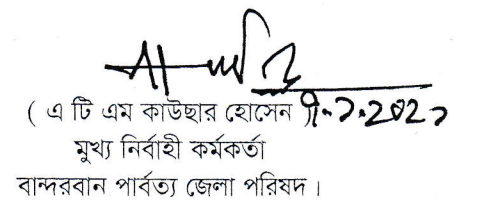 ( এ টি এম কাউছার হোসেন )
মুখ্য নির্বাহী কর্মকর্তা
বান্দরবান পার্বত্য জেলা পরিষদ ।